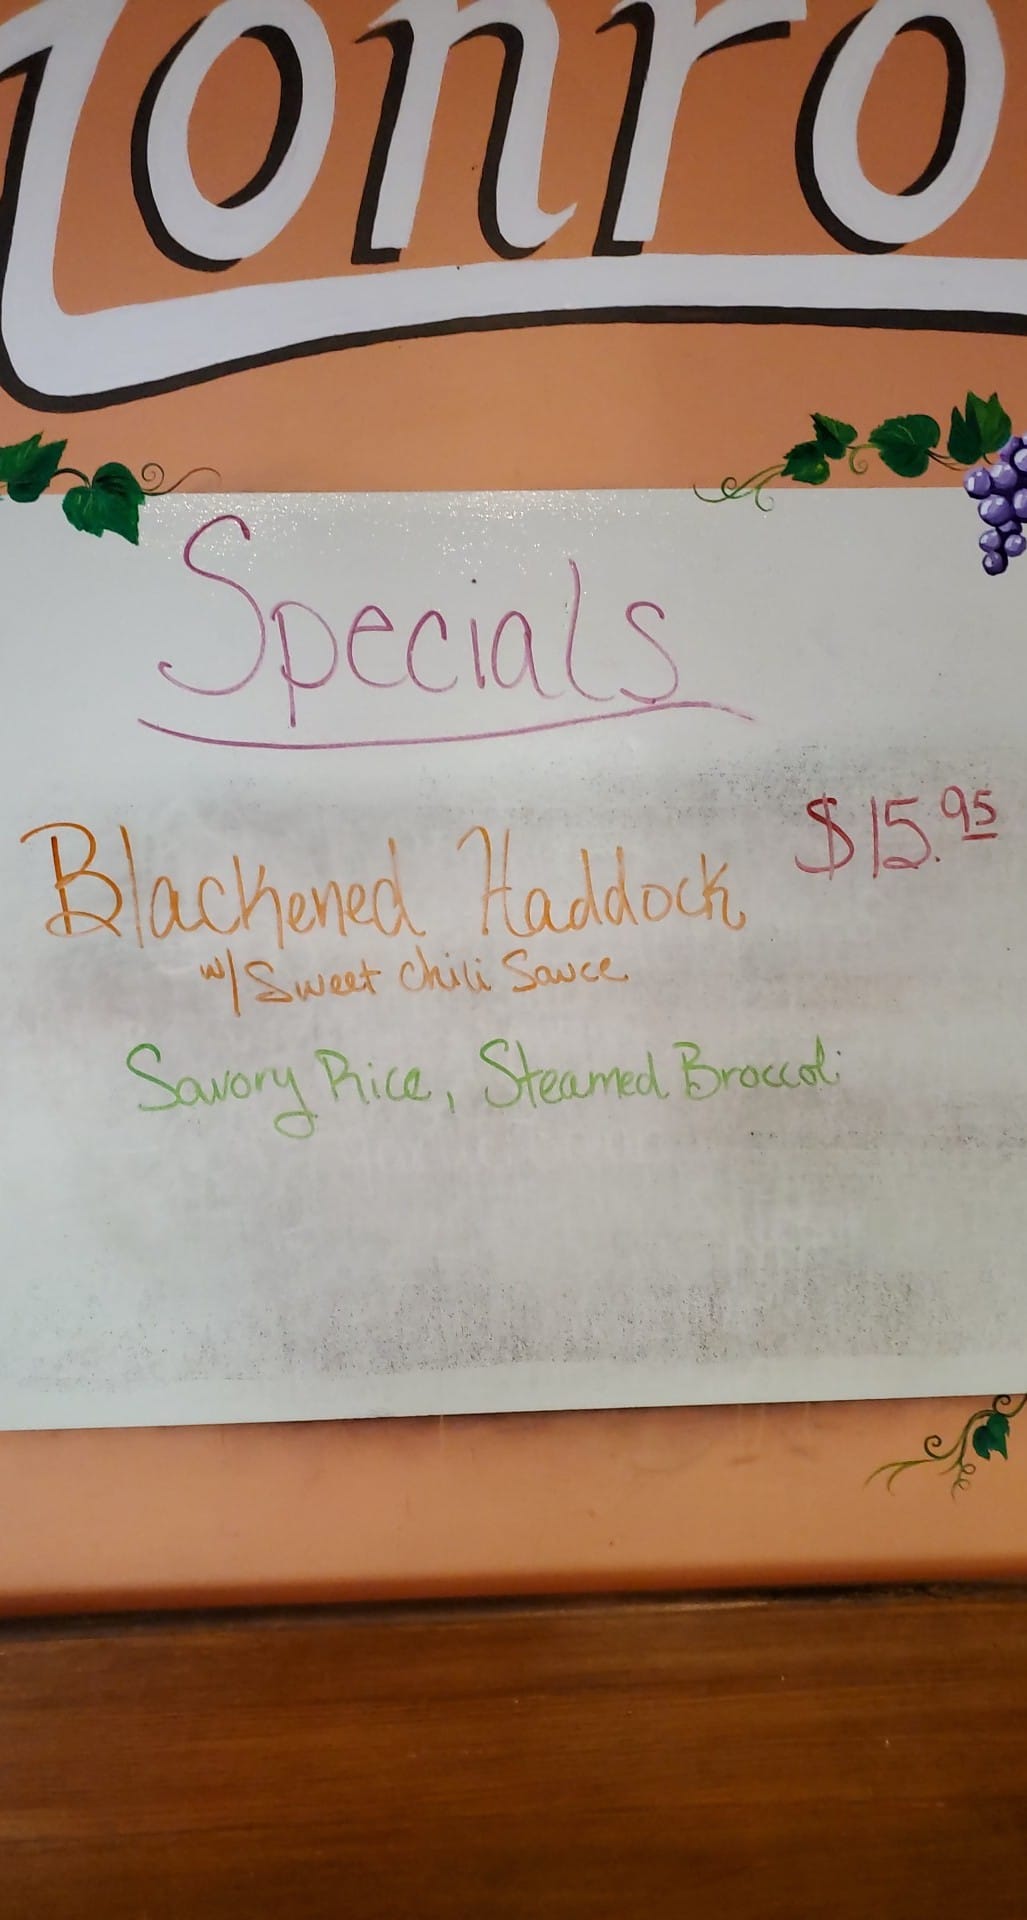 onro
Specials
Blackened Haddock $15.95
w/ Sweet Chili Sauce
Savory Rice, Steamed Broccoli